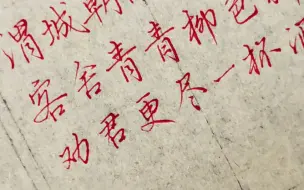 渭城朝
客舍青青柳色
劝君更尽一杯酒